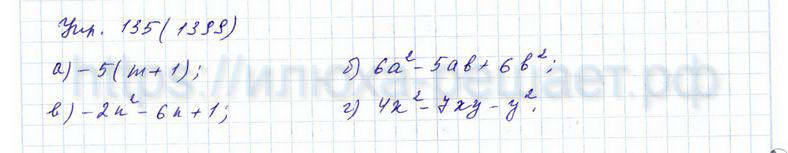 Упр. 135(1399)
а) -5(m+1); б) 6a² - 5ab + 6b²;
в) -2n² - 6n + 1; г) 4x² - 7xy - y².
https://илюхарешает.рф